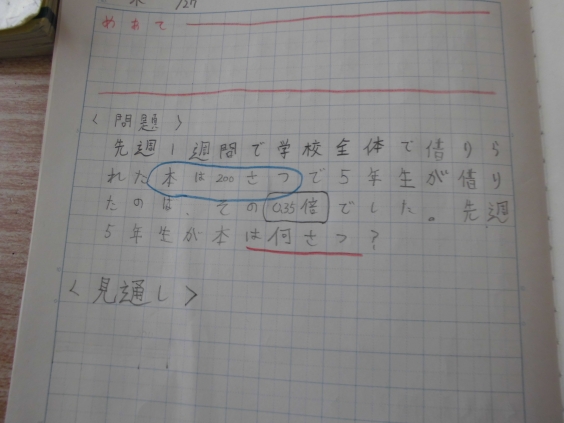 木 /27
めあて
〈問題〉
先週1週間で学校全体で借りら
れた本は200さつで5年生が借り
たのは、その0.35倍でした。先週
5年生が本は何さつ?
〈見通し〉